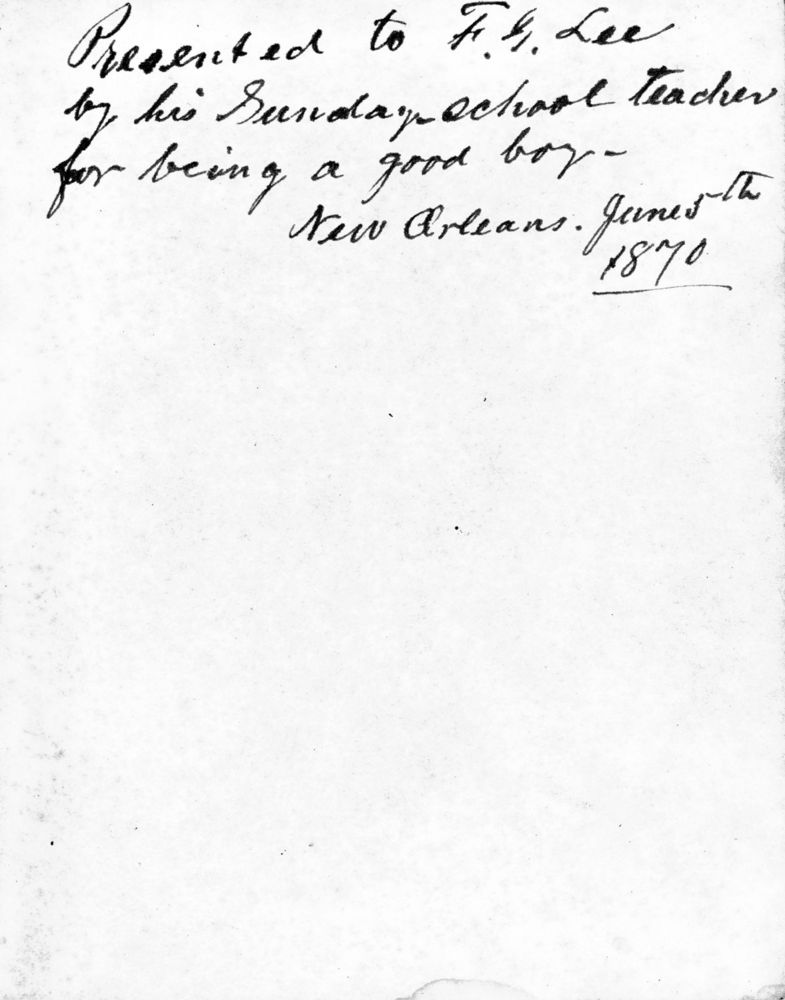 Presented to F. G. Lee
by his Sunday-school teacher
for being a good boy-
New Orleans. June 5th
1870